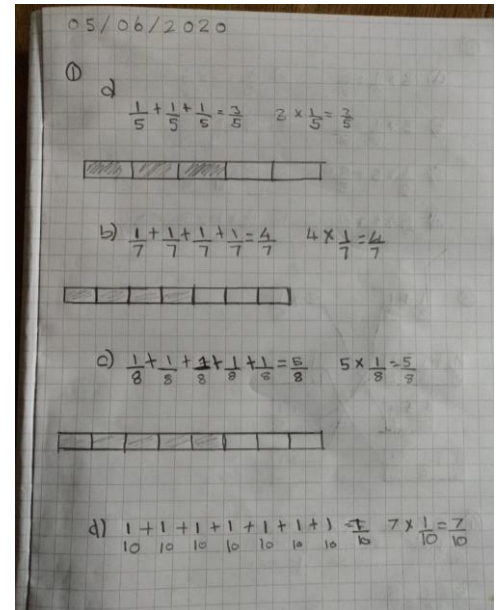 05/06/2020
①
a
1/5 + 1/5 + 1/5 = 3/5 3 × 1/5 = 3/5
b) 1/7 + 1/7 + 1/7 + 1/7 = 4/7 4 × 1/7 = 4/7
c) 1/8 + 1/8 + 1/8 + 1/8 + 1/8 = 5/8 5 × 1/8 = 5/8
d) 1/10 + 1/10 + 1/10 + 1/10 + 1/10 + 1/10 + 1/10 = 7/10 7 × 1/10 = 7/10